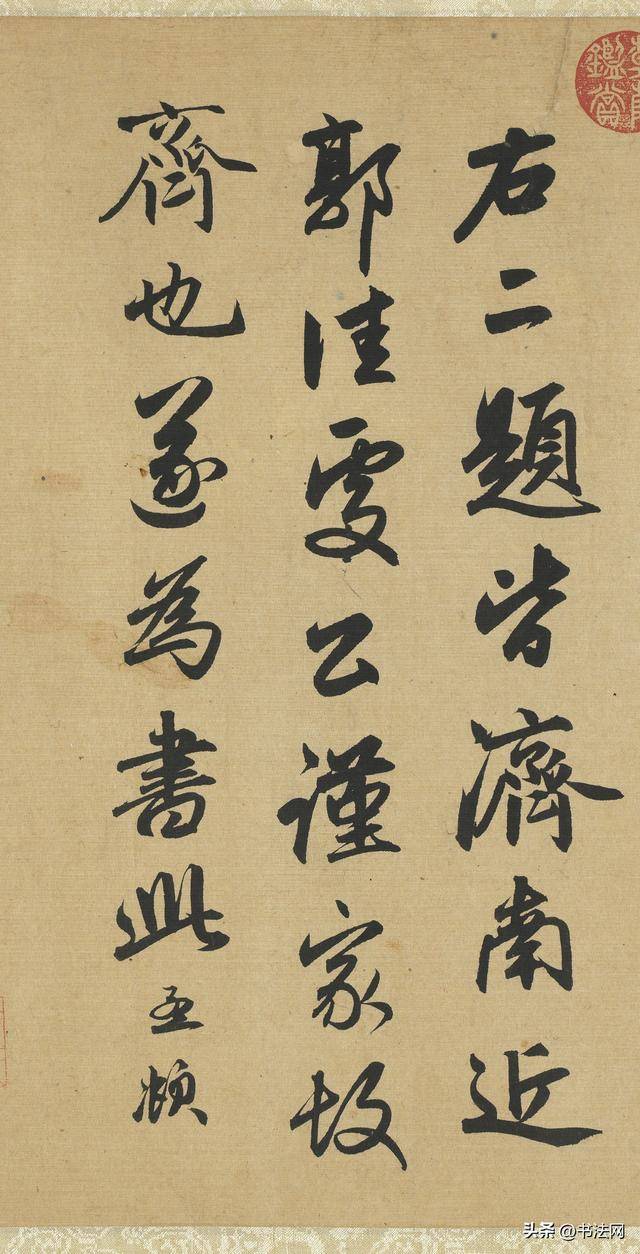 右二題皆濟南近
郭佳處公謹家故
齊也遂為書此孟頫
鑑賞
头条 @书法网